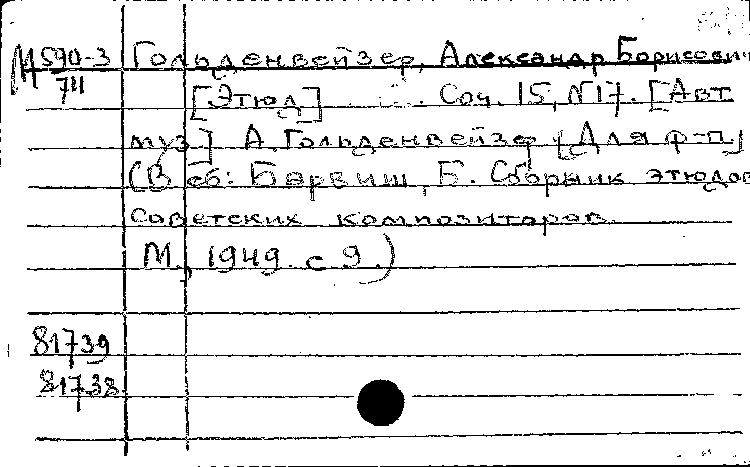 М 590-3 Гольденвейзер, Александр Борисович
711
[Этюд] Соч. 15, N17. [Авт.
муз.] А. Гольденвейзер [Для ф-п]
(В сб: Барвиш, Б. Сборник этюдов
советских композиторов.
М., 1949. с 9.)
81739
81738